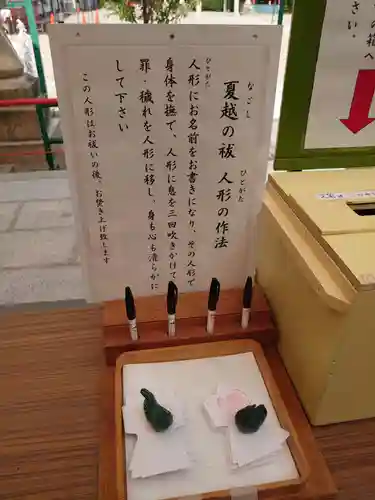 夏越の祓　人形の作法
なごし
ひとがた
人形にお名前をお書きになり、その人形で
ひとがた
身体を撫で、人形に息を三回吹きかけて
罪・穢れを人形に移し、身も心も清らかに
して下さい
この人形はお祓いの後、お焚き上げ致します
さい。
の箱へ